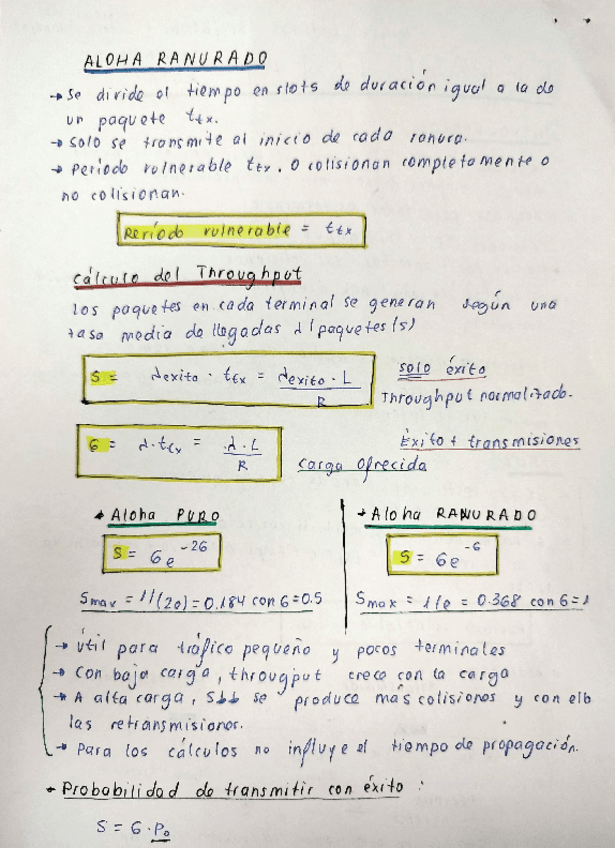 ALOHA RANURADO
→ Se divide el tiempo en slots de duración igual a la de
un paquete ttx.
→ Solo se transmite al inicio de cada ranura.
→ Período vulnerable ttx. O colisionan completamente o
no colisionan.
Período vulnerable = ttx
Cálculo del Throughput
Los paquetes en cada terminal se generan según una
tasa media de llegadas λ (paquetes/s)
S = λexito · ttx = λexito · L / R
solo éxito
Throughput normalizado.
G = λ · ttx = λ · L / R
Éxito + transmisiones
Carga ofrecida
* Aloha PURO
S = Ge^-2G
Smax = 1/(2e) = 0.184 con G=0.5
→ Aloha RANURADO
S = Ge^-G
Smax = 1/e = 0.368 con G=1
→ Útil para tráfico pequeño y pocos terminales
→ Con baja carga, througput crece con la carga
→ A alta carga, S↓↓ se produce más colisiones y con ello
las retransmisiones.
→ Para los cálculos no influye el tiempo de propagación.
* Probabilidad de transmitir con éxito :
S = G · P0